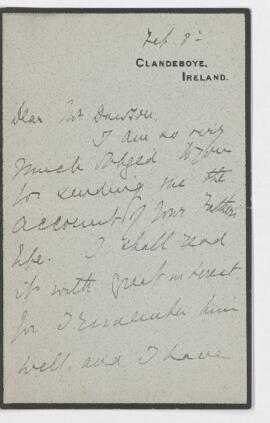 Feb. 8th
CLANDEBOYE,
IRELAND.
Dear Mr Dawson.
I am so very
much obliged to you
for sending me the
account of your Father's
life. I shall read
it with great interest
for I remember him
well. and I have